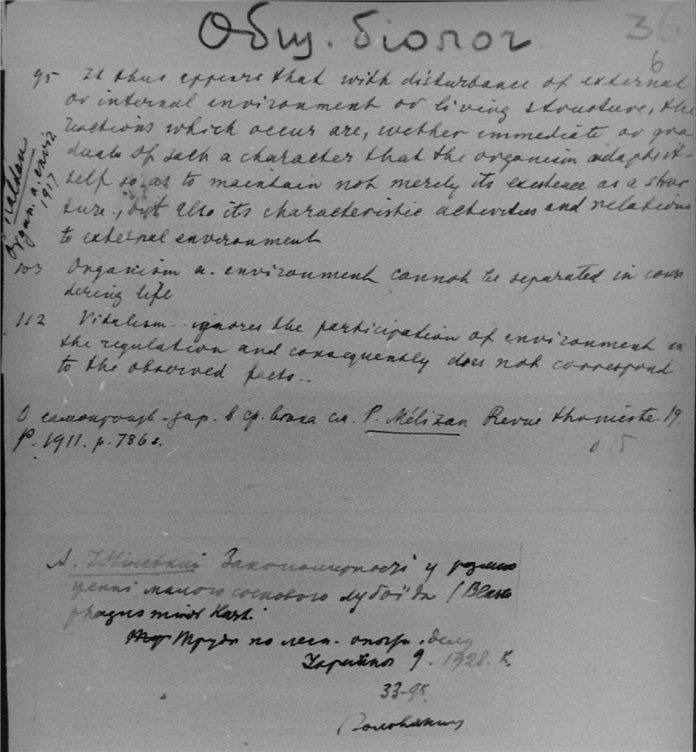 Общ. біолог
36
6
95 It thus appears that with disturbance of external
or internal environment or living structure, the
reactions which occur are, wether immediate or gra-
dual of such a character that the organism adapts it-
self so as to maintain not merely its existence as a struc
ture, but also its characteristic activities and relations
to external environment
Haldan
Organ. a. envir.
1917
103 Organism a. environment cannot be separated in consi
dering life
112 Vitalism.. ignores the participation of environment in
the regulation and consequently does not correspond
to the observed facts..
О самопроизв. зар. в ср. века см. P. Mélizan Revue thomiste. 19.
P. 1911. p. 786 s.
А. Закономірності у розмно
женні малого соснового лубоїда (Blasto
phagus minor Hart.
Труди по лесн. опытн. делу
9. 1928. К.
33-95